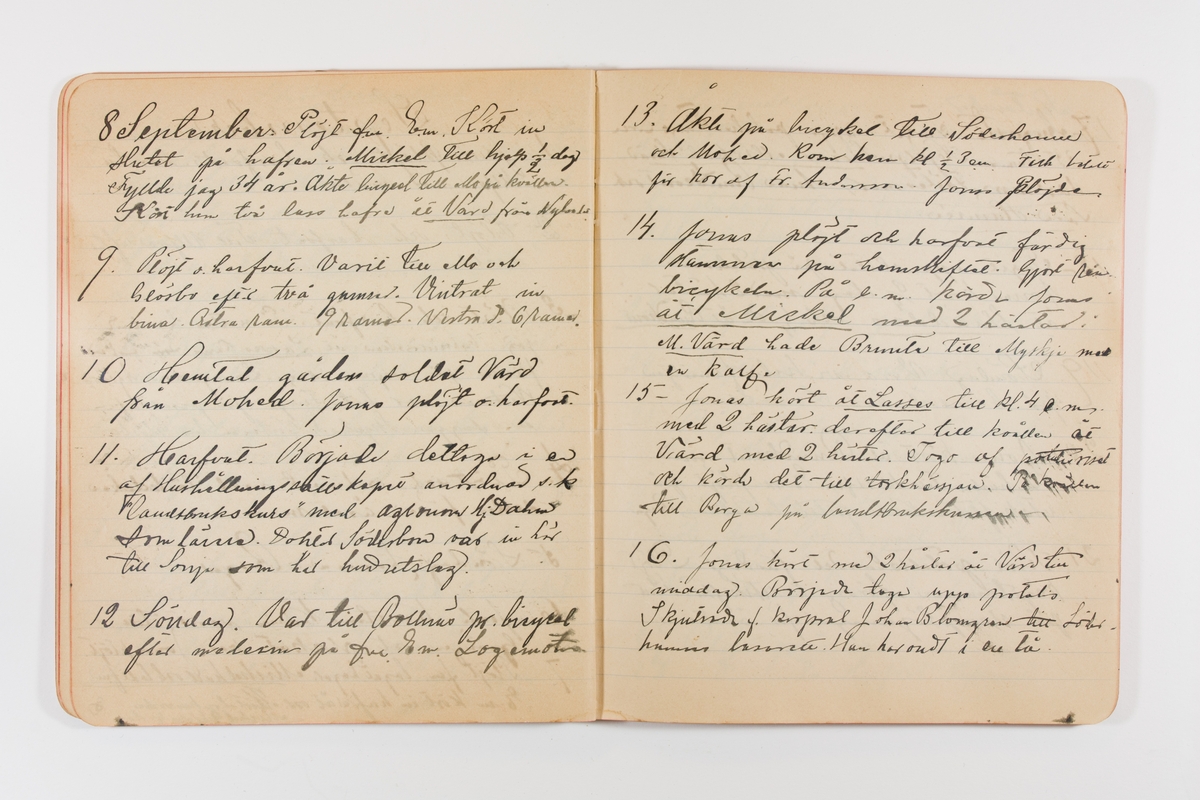 8 September. Plöjt fm. Em. Kört in
slutet på hafren. Mickel till hjelp ½ dag
Fyllde jag 34 år. Åkte bicycel till Mo på kvällen.
Kört hem två lass hafre åt Värd från Nylandet
9. Plöjt o. harfvat. Varit till Mo och
Glösbo efter två gummor. Vintrat in
bina. Östra ram. 9 ramar. Vestra d. 6 ramar.
10 Hemtat gårdens soldat Värd
från Mohed. Jonas plöjt o. harfvat.
11. Harfvat. Började deltaga i en
af Hushållningssällskapet anordnad s.k
"Landtbrukskurs" med agronom Hj. Dahm
som lärare. Doktor Söderbom var in här
till Sonja som har hudutslag.
12 Söndag. Var till Bollnäs pr. bicykel
efter medecin på fm. Em. Logemöte
13. Åkte på bicykel till Söderhamn
och Mohed. Kom hem kl ½ 3 em. Fick
för kor af Fr. Andersson Jonas plöjde.
14. Jonas plöjt och harfvat färdig
på hemskiftet. Gjort ren
bicykeln. På e.m. körde Jonas
åt Mickel med 2 hästar.
M. Värd hade Brunte till Myskje med
en kalf.
15- Jonas kört åt Lasses till kl. 4 e.m.
med 2 hästar. derefter till kvällen åt
Värd med 2 hästar. Togo af potatisriset
och körde det till torkhässjan. På kvällen
till Berga på landtbrukskursen
16. Jonas kört med 2 hästar åt Värd till
middag. Började taga upp potatis.
Skjutsade f. korpral Johan Blomgren till Söder-
hamns lasarete. Han har ondt i en tå.